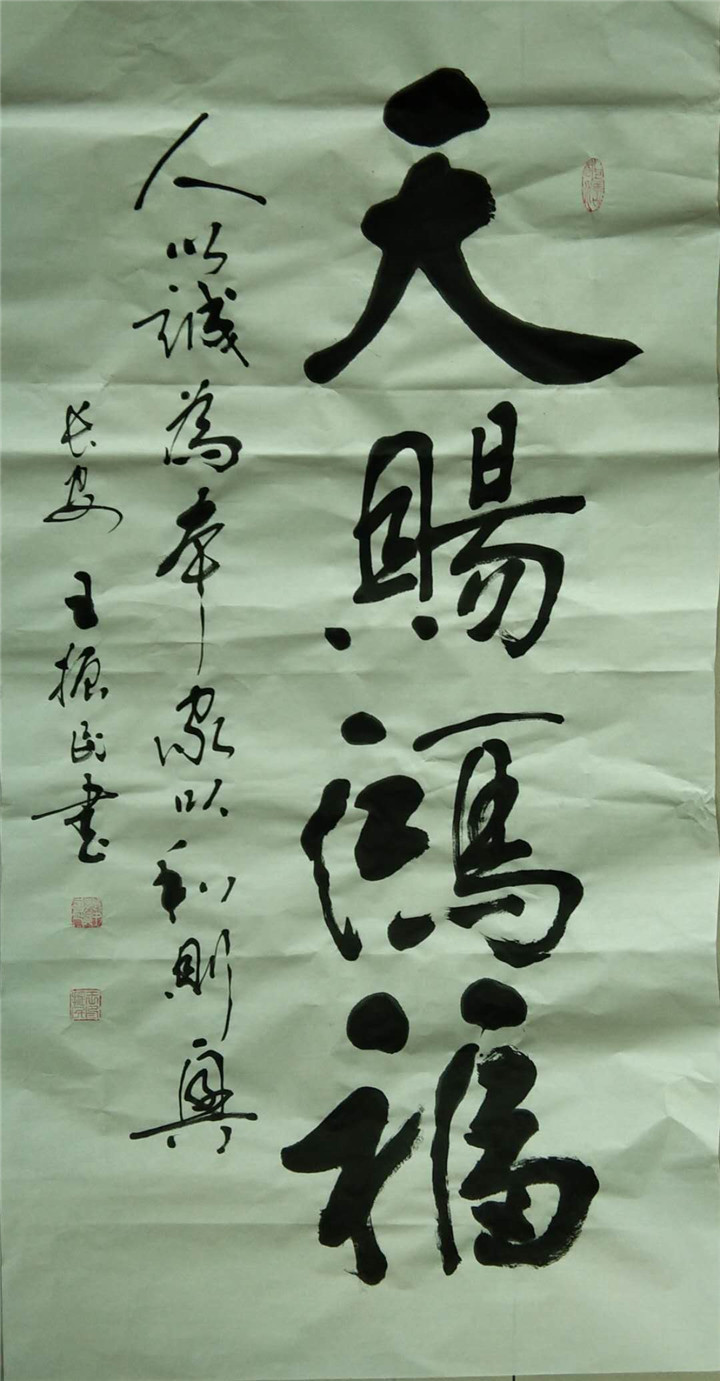 天賜鴻福
人以誠為本家以和則興
長安 王振民書